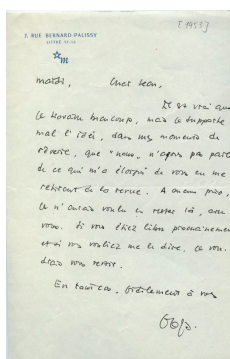 [1953]
7, RUE BERNARD-PALISSY
LITTRÉ
m
mardi, Cher Jean,
Il est vrai que
je travaille beaucoup, mais je supporte
mal l'idée, dans mes moments de
rêverie, que "nous" n'ayons pas parlé
de ce qui m'a éloigné de vous en me
retirant de la revue. A aucun prix,
je n'aurais voulu en rester là, avec
vous. Si vous étiez libre prochainement
et si vous vouliez me le dire, je vou-
drais vous revoir.
En tout cas, fidèlement à vous